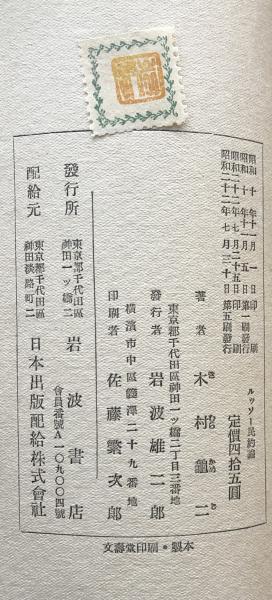 昭和十年十一月一日印刷
昭和十年十一月五日第一刷發行
昭和二十二年七月二十五日印刷
昭和二十二年七月三十日第五刷發行
ルッソー民約論
定價四拾五圓
著者 木村龜二
東京都千代田區神田一ッ橋二丁目三番地
發行者 岩波雄二郎
橫濱市中區蠶澤二十九番地
印刷者 佐藤繁次郎
發行所 東京都千代田區神田一ッ橋二 岩波書店
會員番號A一〇九〇〇四號
配給元 東京都千代田區神田淡路町二 日本出版配給株式會社
文壽堂印刷・製本